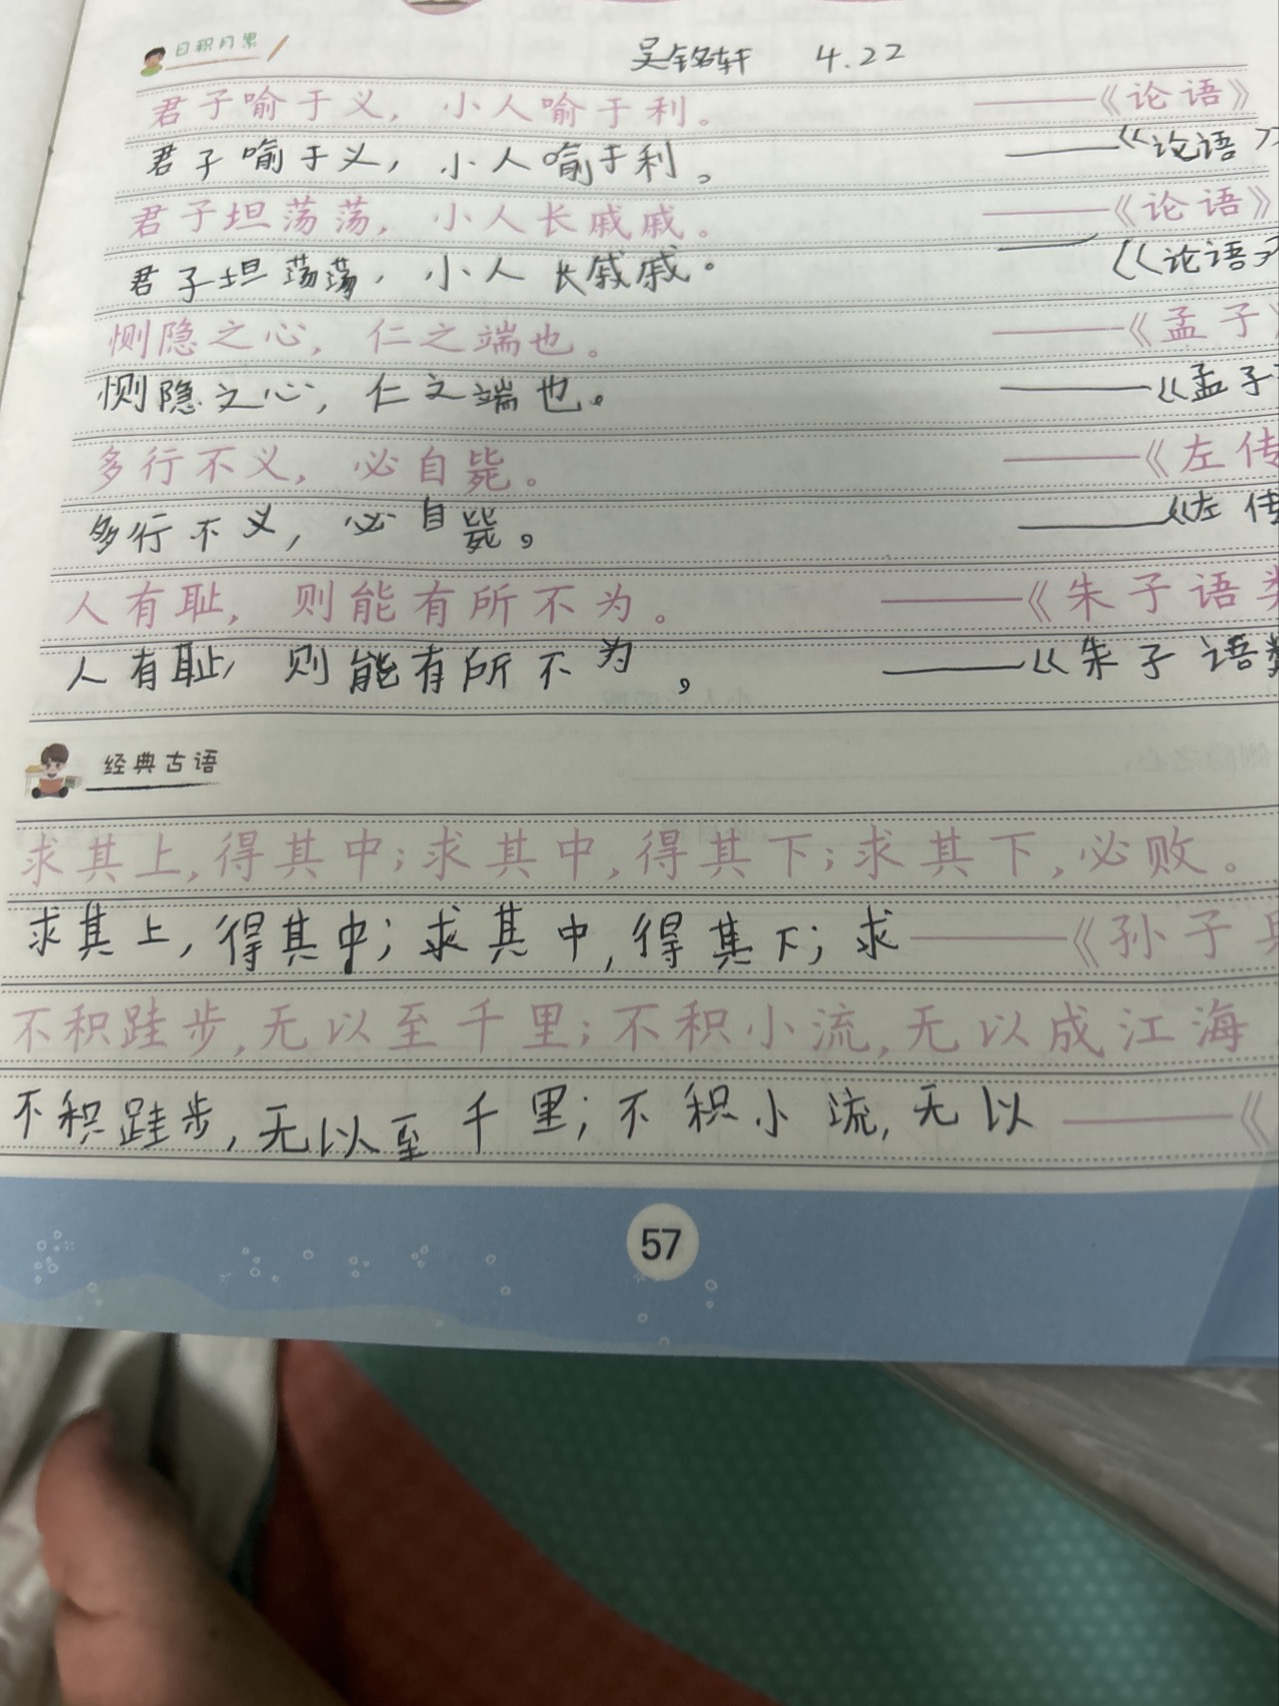 日积月累
吴铭轩 4.22
君子喻于义，小人喻于利。 ——《论语》
君子喻于义，小人喻于利。 ——《论语》
君子坦荡荡，小人长戚戚。 ——《论语》
君子坦荡荡，小人长戚戚。 ——《论语》
恻隐之心，仁之端也。 ——《孟子》
恻隐之心，仁之端也。 ——《孟子
多行不义，必自毙。 ——《左传
多行不义，必自毙。 ——《左传
人有耻，则能有所不为。 ——《朱子语类
人有耻，则能有所不为。 ——《朱子语类
经典古语
求其上，得其中；求其中，得其下；求其下，必败。
求其上，得其中；求其中，得其下；求 ——《孙子兵
不积跬步，无以至千里；不积小流，无以成江海
不积跬步，无以至千里；不积小流，无以 ——《
57